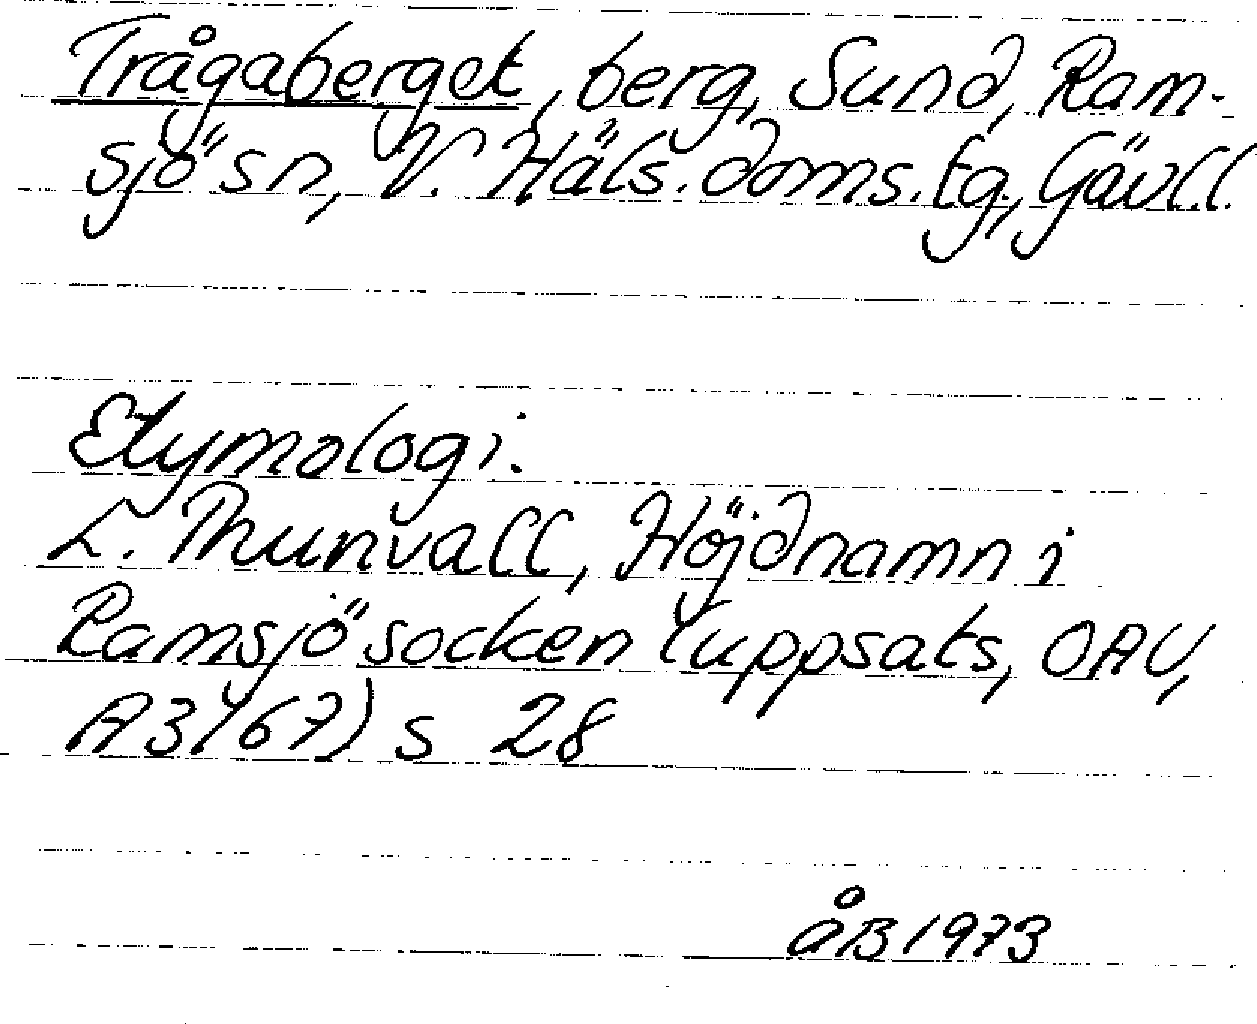 Trågaberget, berg, Sund, Ram-
sjö sn, V. Häls. doms.tg, Gävl.l.
Etymologi.
L. Thunvall, Höjdnamn i
Ramsjö socken (uppsats, OAU,
A3/67) s 28
ÅB 1973